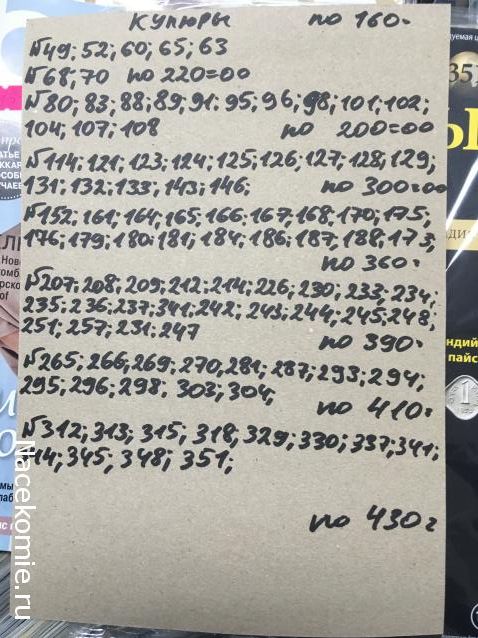 КУПЮРЫ по 160=
№49; 52; 60; 65; 63
№68; 70 по 220=00
№80; 83; 88; 89; 91; 95; 96; 98; 101; 102;
104; 107; 108 по 200=00
№114; 121; 123; 124; 125; 126; 127; 128; 129;
131; 132; 133; 143; 146; по 300=00
№152; 161; 164; 165; 166; 167; 168; 170; 175;
176; 179; 180; 181; 184; 186; 187; 188; 173;
по 360=
№207; 208; 209; 212; 214; 226; 230; 233; 234;
235; 236; 237; 341; 242; 243; 244; 245; 248;
251; 257; 231; 247 по 390=
№265; 266; 269; 270; 281; 287; 293; 294;
295; 296; 298; 303; 304; по 410=
№312; 313; 315; 318; 329; 330; 337; 341;
14; 345; 348; 351;
по 430=
35
Ы
1
Nacekomie.ru